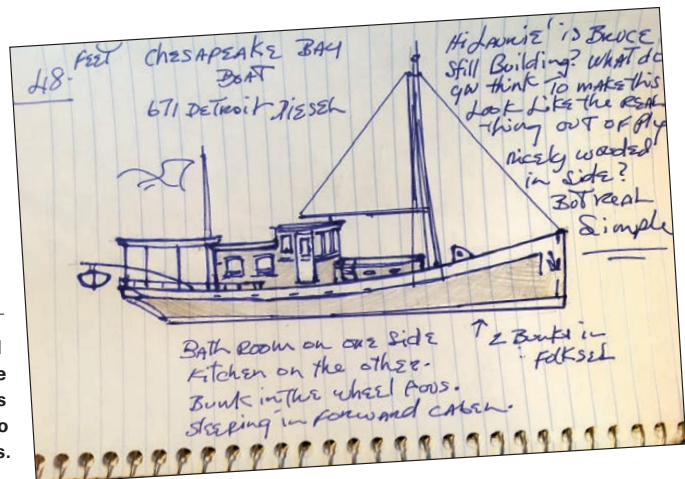 48. FEET CHESAPEAKE BAY
BOAT
671 DETROIT DIESEL
Hi LAURIE! is BRUCE
Still Building? WHAT do
you think To MAKE this
Look Like the REAL
thing OUT OF Ply
nicely wooded
in side?
BOT REAL
Simple
BATH ROOM on one Side
Kitchen on the other.
Bunk in the wheel
sleeping in FORWARD CABEN.
↑ 2 Bunks in
FolkSEL
l
e
s
o
s.